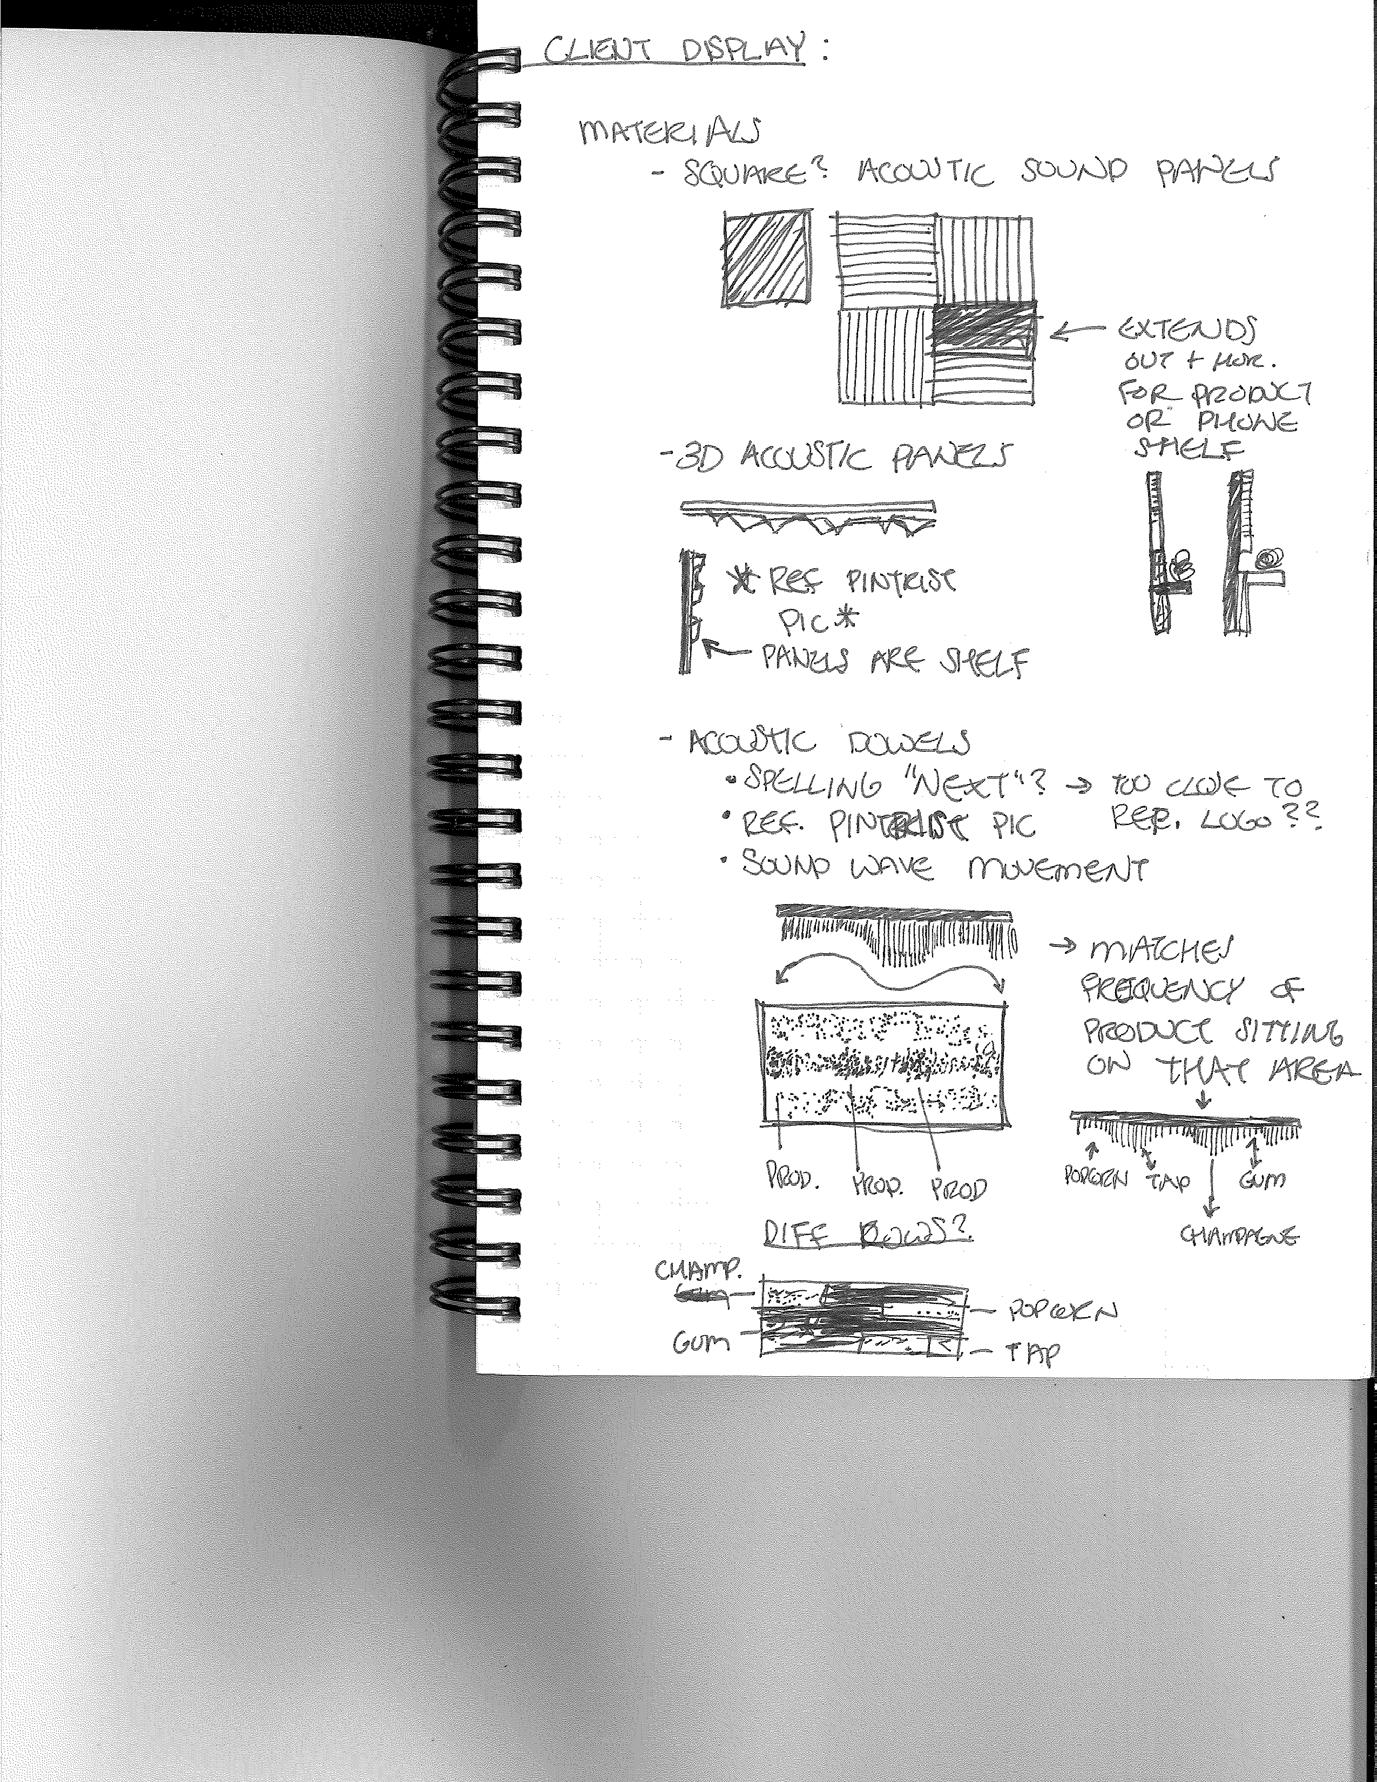 CLIENT DISPLAY:
MATERIALS
- SQUARE? ACOUSTIC SOUND PANELS
← EXTENDS
OUT + HOR.
FOR PRODUCT
OR PHONE
SHELF
- 3D ACOUSTIC PANELS
* REF PINTRIST
PIC *
← PANELS ARE SHELF
- ACOUSTIC DOWELS
• SPELLING "NEXT"? → TOO CLOSE TO
REP. LOGO??
• REF. PINTRIST PIC
• SOUND WAVE MOVEMENT
→ MATCHES
FREQUENCY OF
PRODUCT SITTING
ON THAT AREA
PROD. PROD. PROD
POPCORN TAP GUM
CHAMPAGNE
DIFF ROWS?
CHAMP.
GUM
POPCORN
TAP